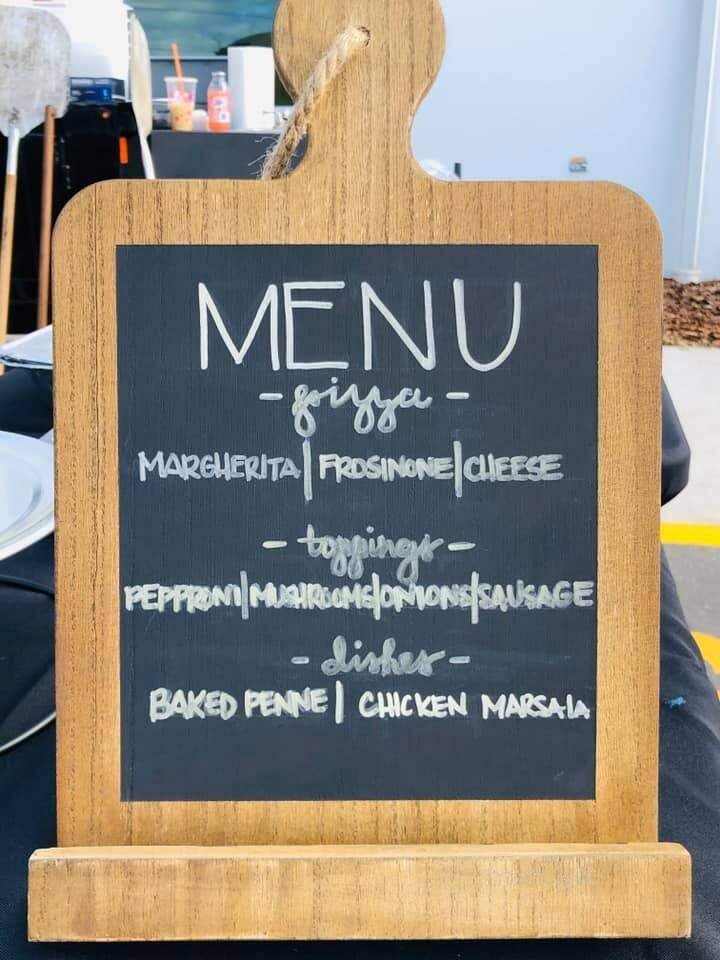 MENU
- pizza -
MARGHERITA | FROSINONE | CHEESE
- toppings -
PEPPRONI | MUSHROOMS | ONIONS | SAUSAGE
- dishes -
BAKED PENNE | CHICKEN MARSALA